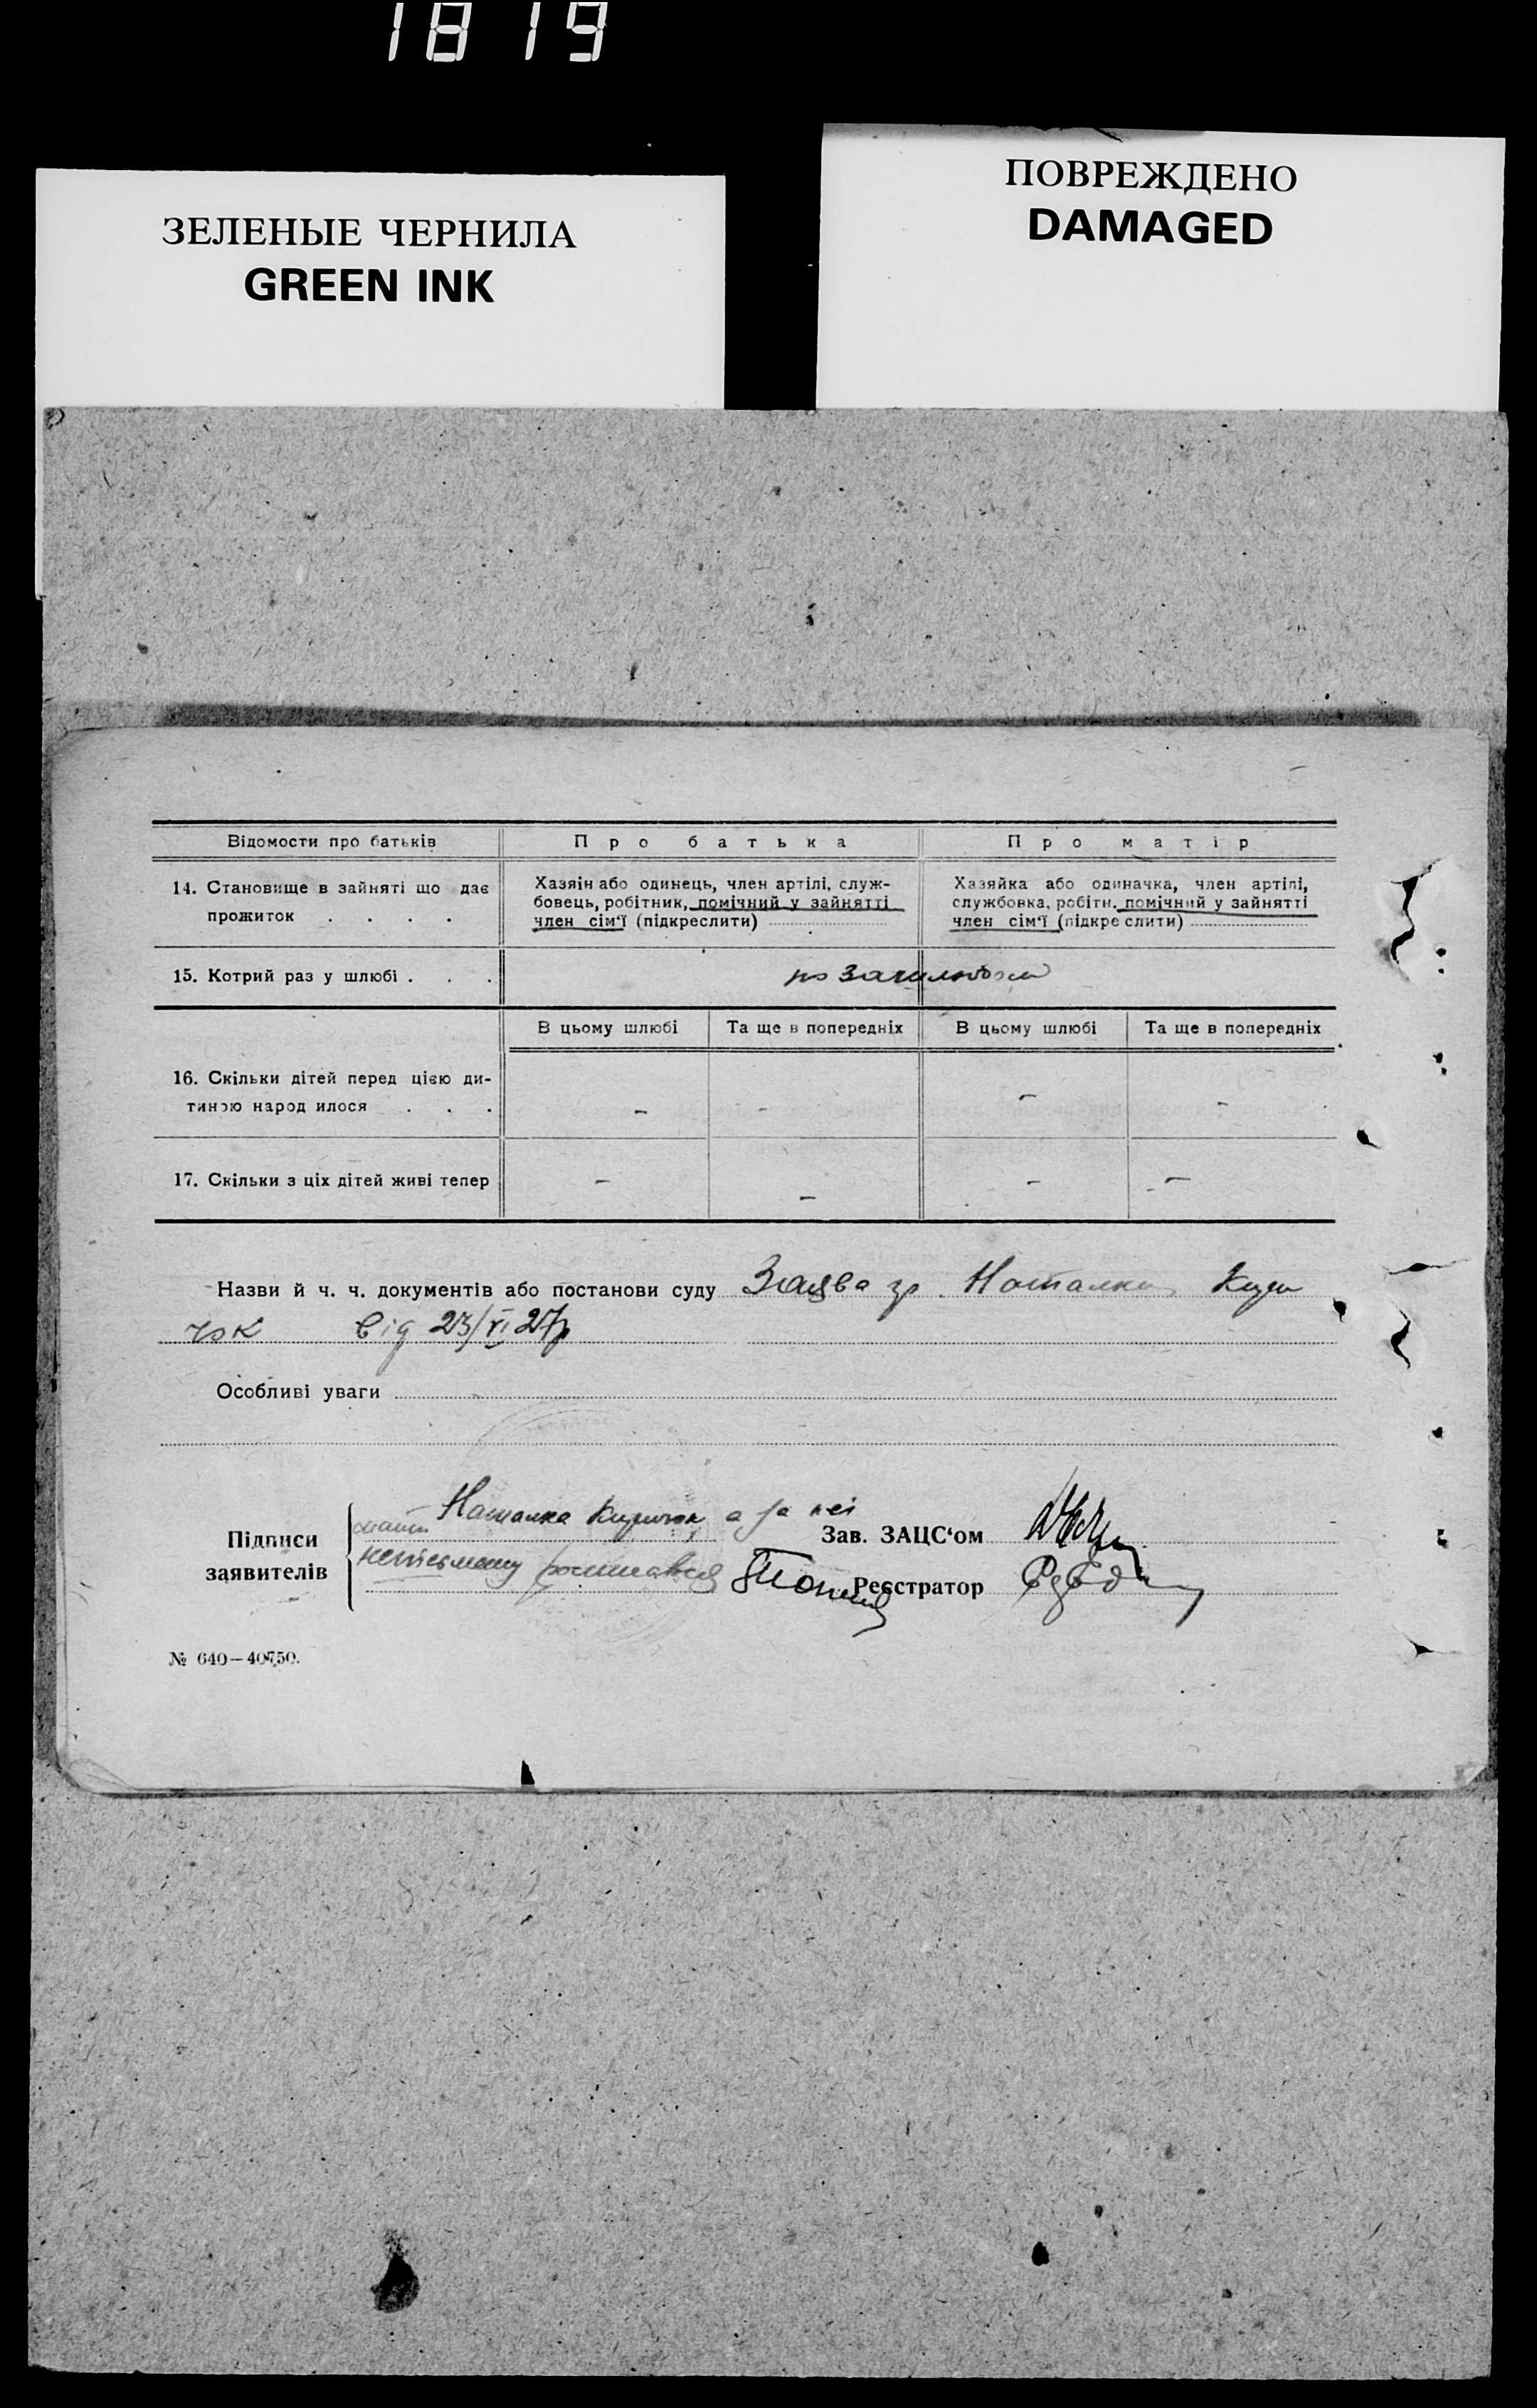 1819
ЗЕЛЕНЫЕ ЧЕРНИЛА
GREEN INK
ПОВРЕЖДЕНО
DAMAGED
Відомости про батьків
Про батька
Про матір
14. Становище в зайняті що дає
прожиток . . . .
Хазяїн або одинець, член артілі, служ-
бовець, робітник, помічний у зайнятті
член сім'ї (підкреслити)
Хазяйка або одиначка, член артілі,
службовка, робітн. помічний у зайнятті
член сім'ї (підкреслити)
15. Котрий раз у шлюбі . . .
В цьому шлюбі
Та ще в попередніх
В цьому шлюбі
Та ще в попередніх
16. Скільки дітей перед цією ди-
тиною народилося . . .
– – – –
17. Скільки з ціх дітей живі тепер
– – – –
Назви й ч. ч. документів або постанови суду Заява гр. Наталки
від 23/VI 27р
Особливі уваги
Підписи
заявителів
Наталка а за неї
неписьменну
Зав. ЗАЦС'ом
Реєстратор
№ 640–40750.